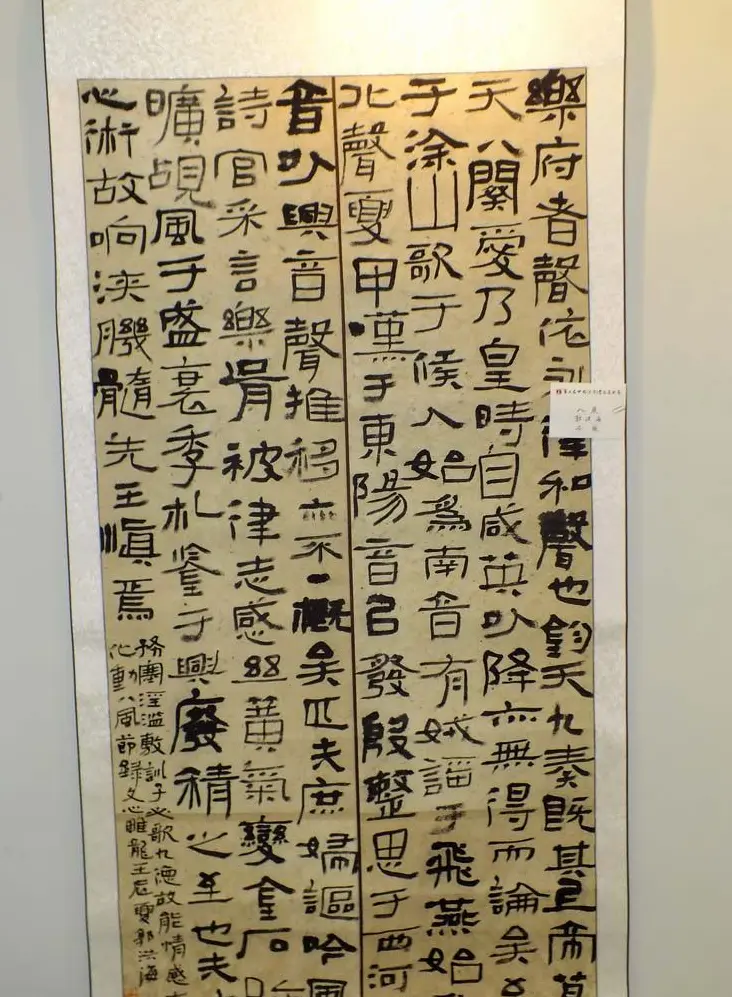 樂府者聲依永律和聲也鈞天九奏既其上帝葛
天八闋愛乃皇時自咸英以降亦無得而論矣至
于涂山歌于候人始爲南音有娀謡于飛燕始
北聲夏甲嘆于東陽音㠯發殷整思于西河
音以興音聲推移亦不一概矣匹夫庶婦謳吟風
詩官采言樂胥被律志感絲黃氣變金石
曠覘風于盛衰季札鑒于興廢精之至也夫
心術故响浹機髓先王慎焉
務塞淫濫敷訓子必歌九德故能情感
化動八風節録文心雕龍壬辰夏郭洪海